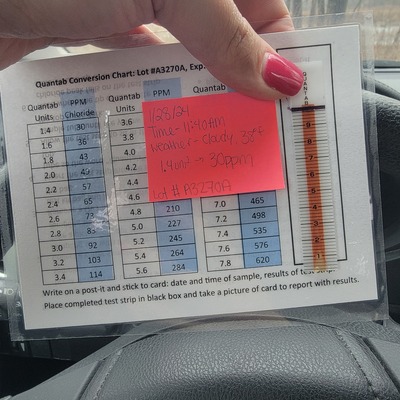 Quantab Conversion Chart: Lot #A3270A, Exp.
Quantab Units PPM Chloride
1.4 30
1.6 36
1.8 43
2.0
2.2 57
2.4 65
2.6 73
2.8
3.0 92
3.2 103
3.4 114
Quantab Units PPM
3.6
3.8
4.0
4.2
4.4
4.6
4.8 210
5.0 227
5.2 245
5.4 264
5.6 284
Quantab
7.0 465
7.2 498
7.4 535
7.6 576
7.8 620
1/28/24
Time - 11:40 am
Weather - Cloudy 39°F
1.4 unit → 30ppm
Lot # A3270A
QUANTAB
Write on a post-it and stick to card: date and time of sample, results of test strip.
Place completed test strip in black box and take a picture of card to report with results.